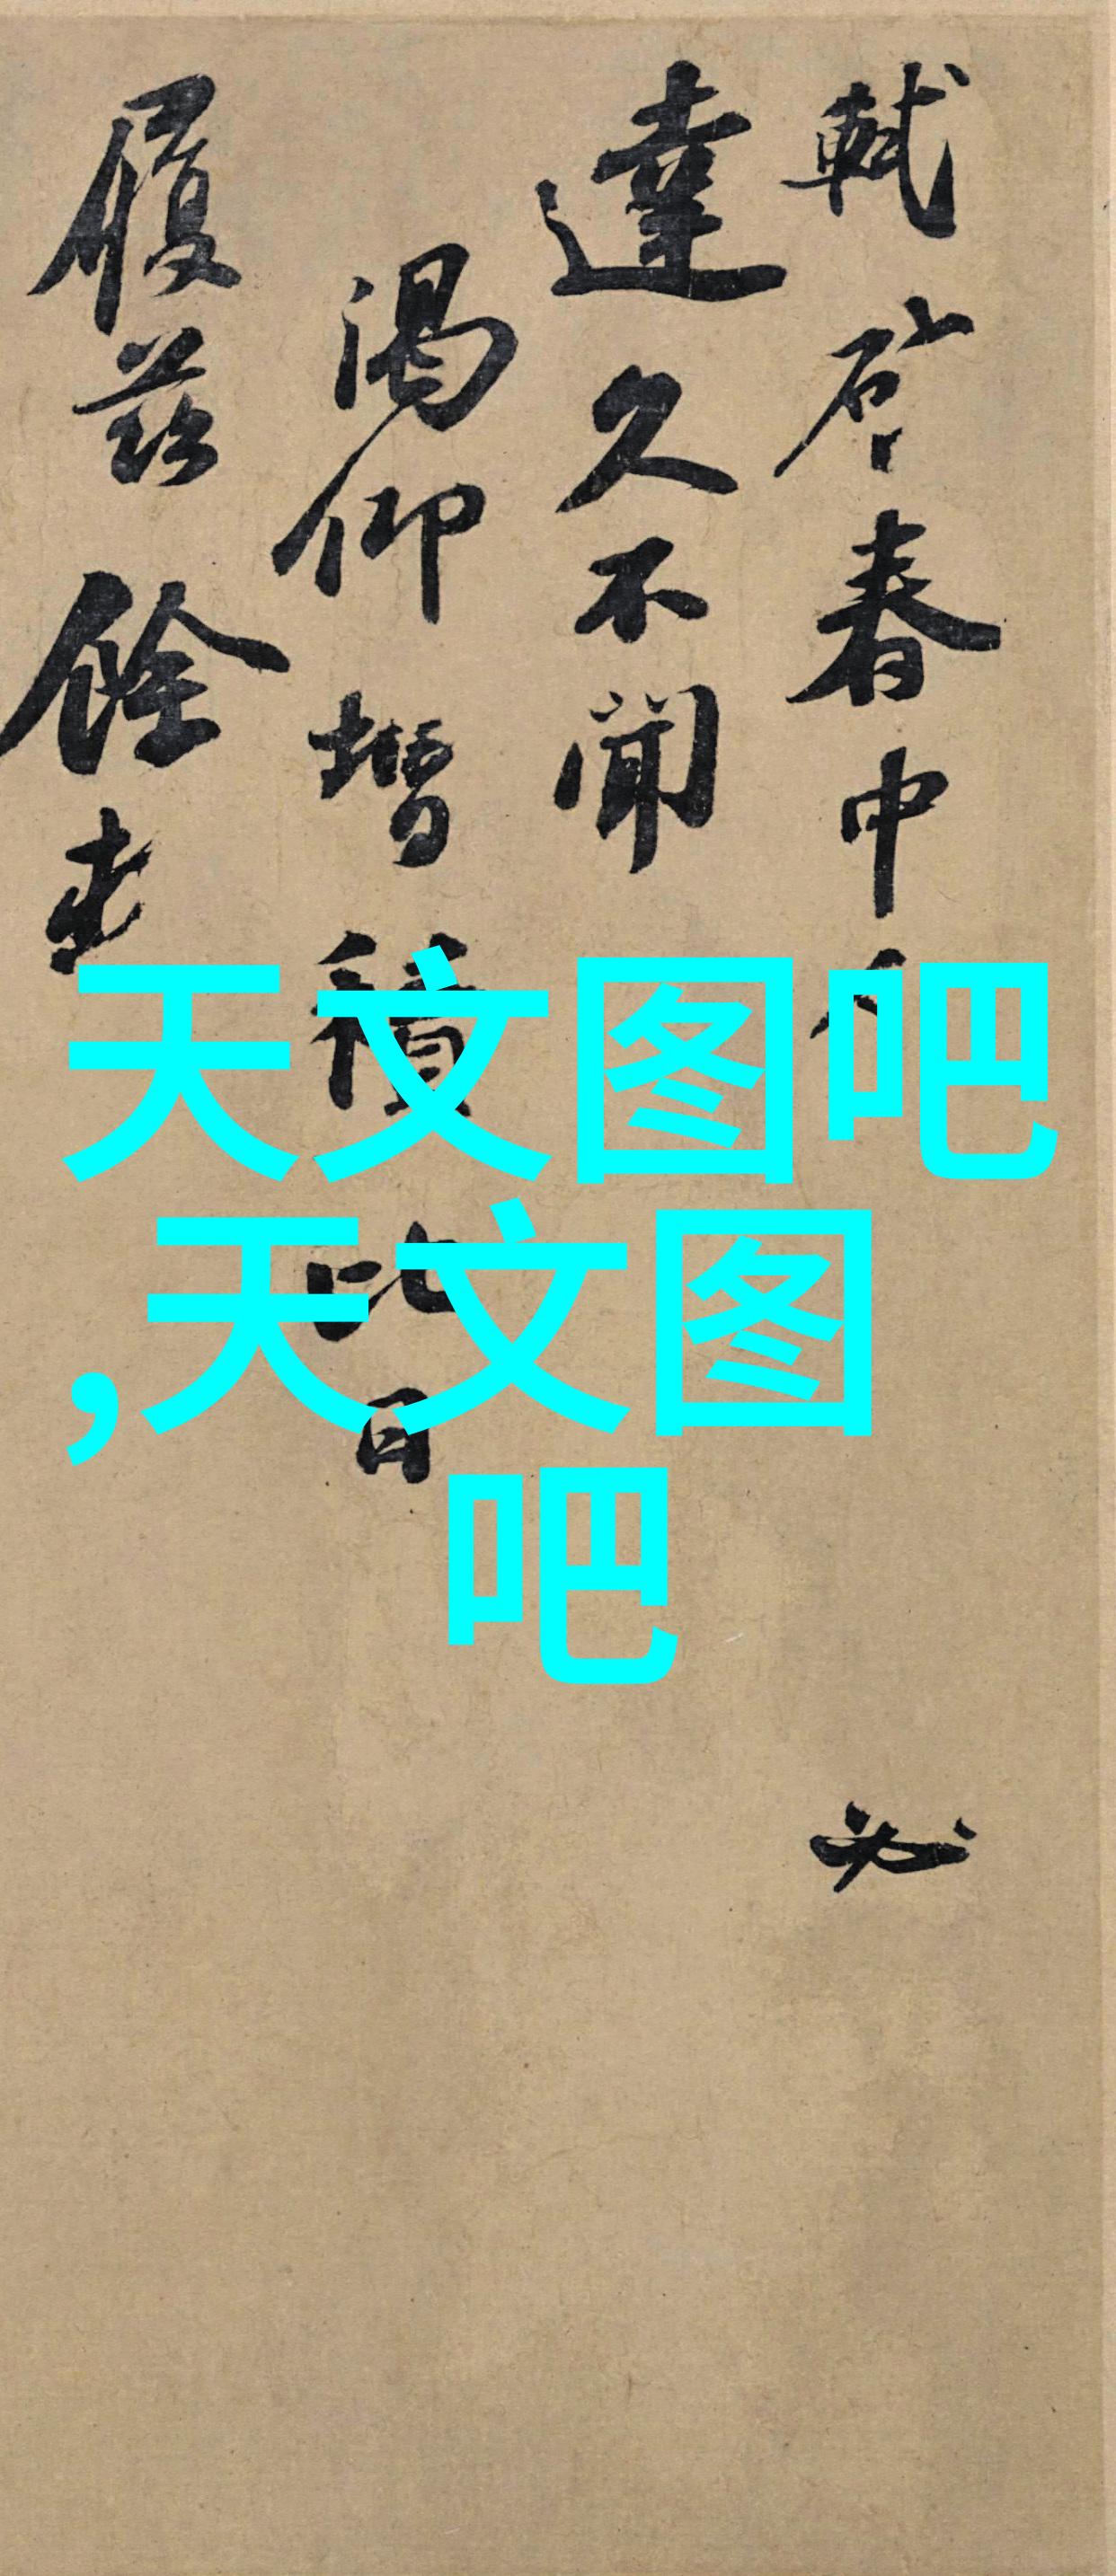 軾啓春中必
達久不聞
渴仰增積比日
履茲餘
天文图吧
,天文图
吧